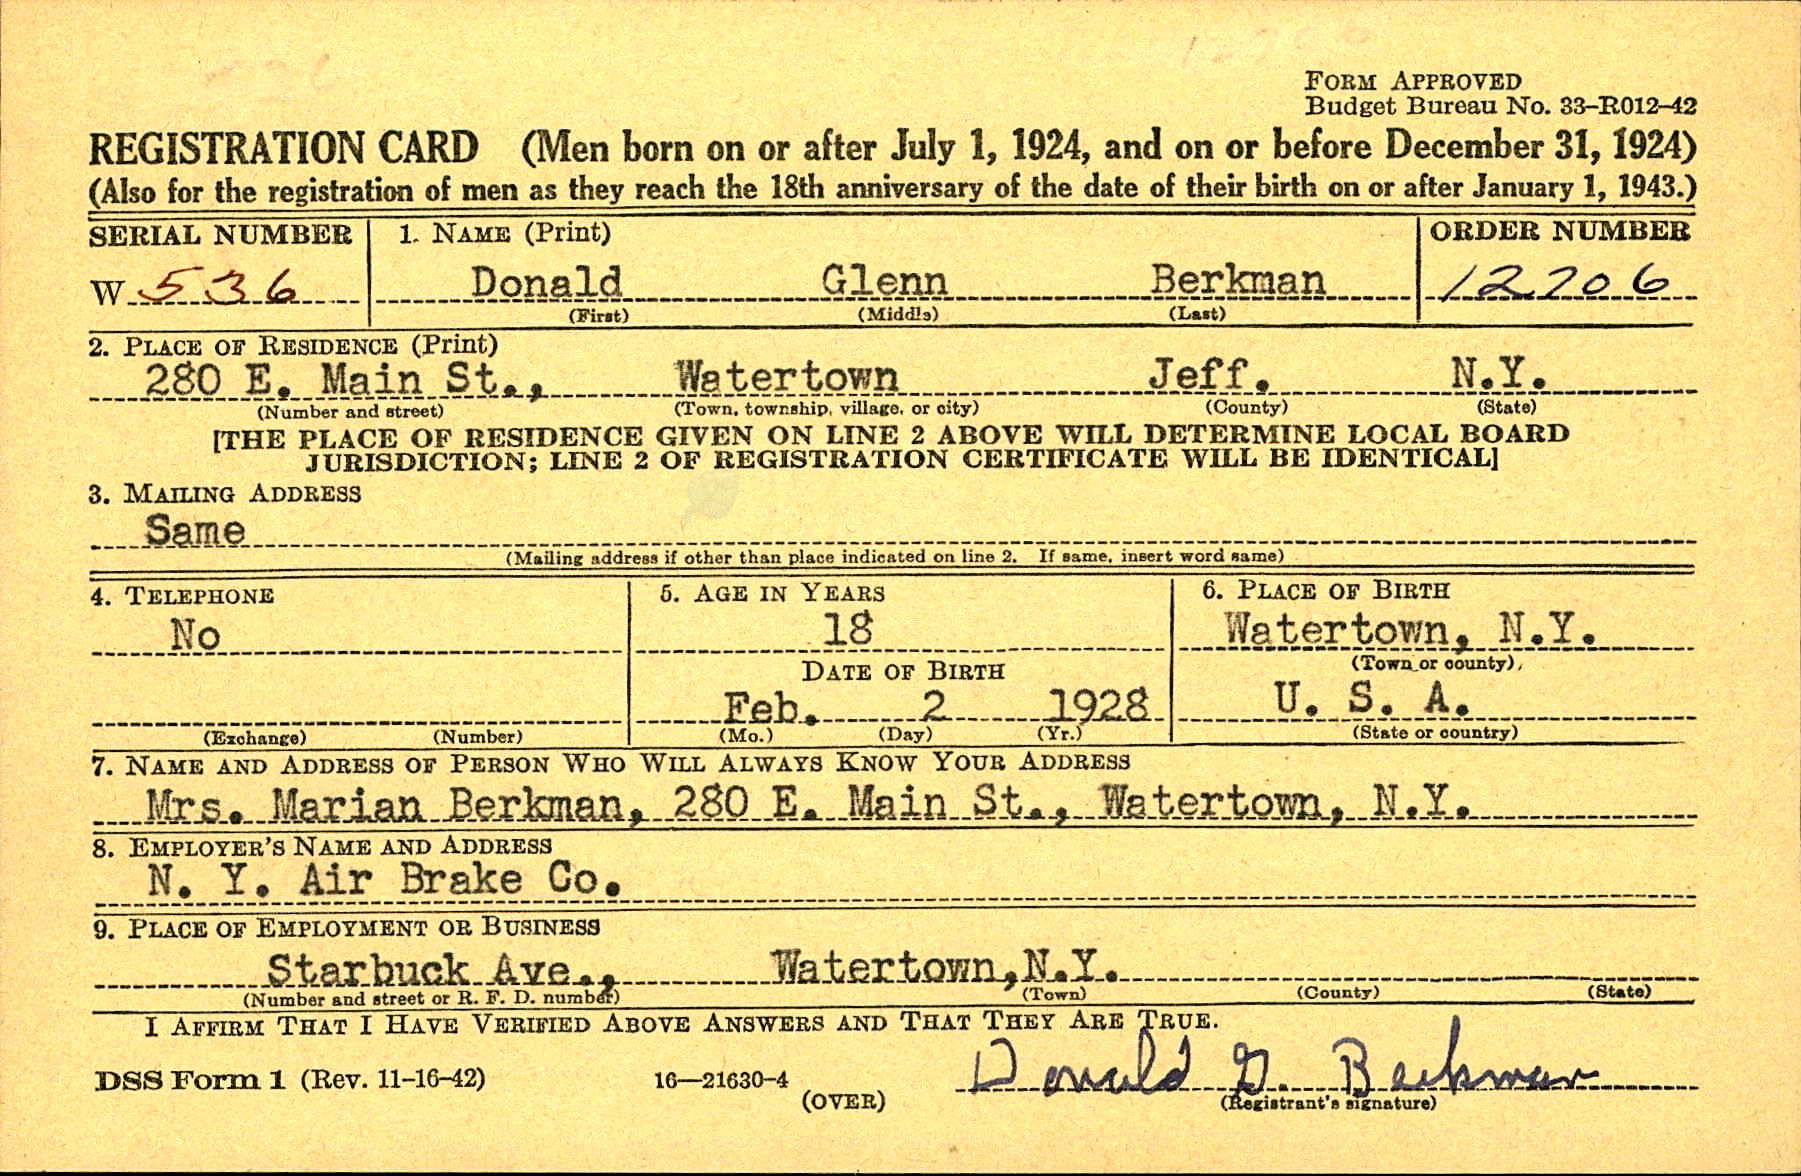 FORM APPROVED
Budget Bureau No. 33-R012-42
REGISTRATION CARD (Men born on or after July 1, 1924, and on or before December 31, 1924)
(Also for the registration of men as they reach the 18th anniversary of the date of their birth on or after January 1, 1943.)
SERIAL NUMBER 1. NAME (Print) ORDER NUMBER
W 536 Donald Glenn Berkman 12706
(First) (Middle) (Last)
2. PLACE OF RESIDENCE (Print)
280 E. Main St., Watertown Jeff. N.Y.
(Number and street) (Town, township, village, or city) (County) (State)
[THE PLACE OF RESIDENCE GIVEN ON LINE 2 ABOVE WILL DETERMINE LOCAL BOARD
JURISDICTION; LINE 2 OF REGISTRATION CERTIFICATE WILL BE IDENTICAL]
3. MAILING ADDRESS
Same
(Mailing address if other than place indicated on line 2. If same, insert word same)
4. TELEPHONE 5. AGE IN YEARS 6. PLACE OF BIRTH
No 18 Watertown, N.Y.
(Town or county)
DATE OF BIRTH
Feb. 2 1928 U. S. A.
(Exchange) (Number) (Mo.) (Day) (Yr.) (State or country)
7. NAME AND ADDRESS OF PERSON WHO WILL ALWAYS KNOW YOUR ADDRESS
Mrs. Marian Berkman, 280 E. Main St., Watertown, N.Y.
8. EMPLOYER'S NAME AND ADDRESS
N. Y. Air Brake Co.
9. PLACE OF EMPLOYMENT OR BUSINESS
Starbuck Ave., Watertown, N.Y.
(Number and street or R. F. D. number) (Town) (County) (State)
I AFFIRM THAT I HAVE VERIFIED ABOVE ANSWERS AND THAT THEY ARE TRUE.
DSS Form 1 (Rev. 11-16-42) 16—21630-4 Donald G. Berkman
(OVER) (Registrant's signature)